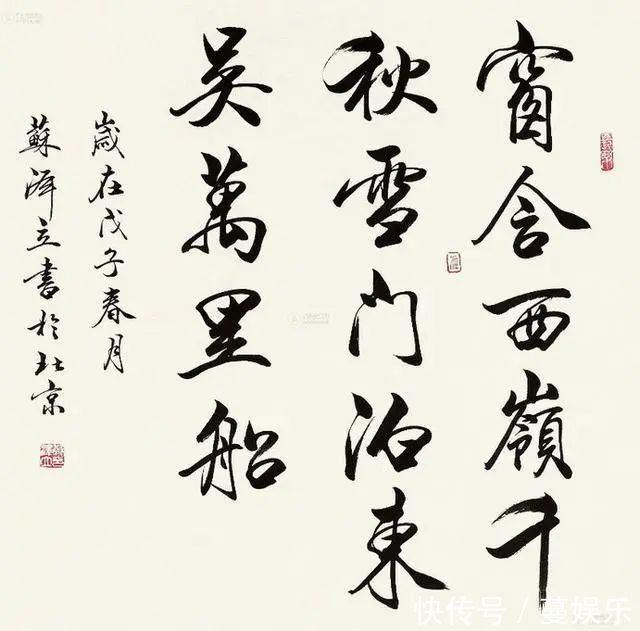 窗含西嶺千
秋雪門泊東
吳萬里船
歲在戊子春月
蘇澤立書於北京
快传号/蔓娱乐